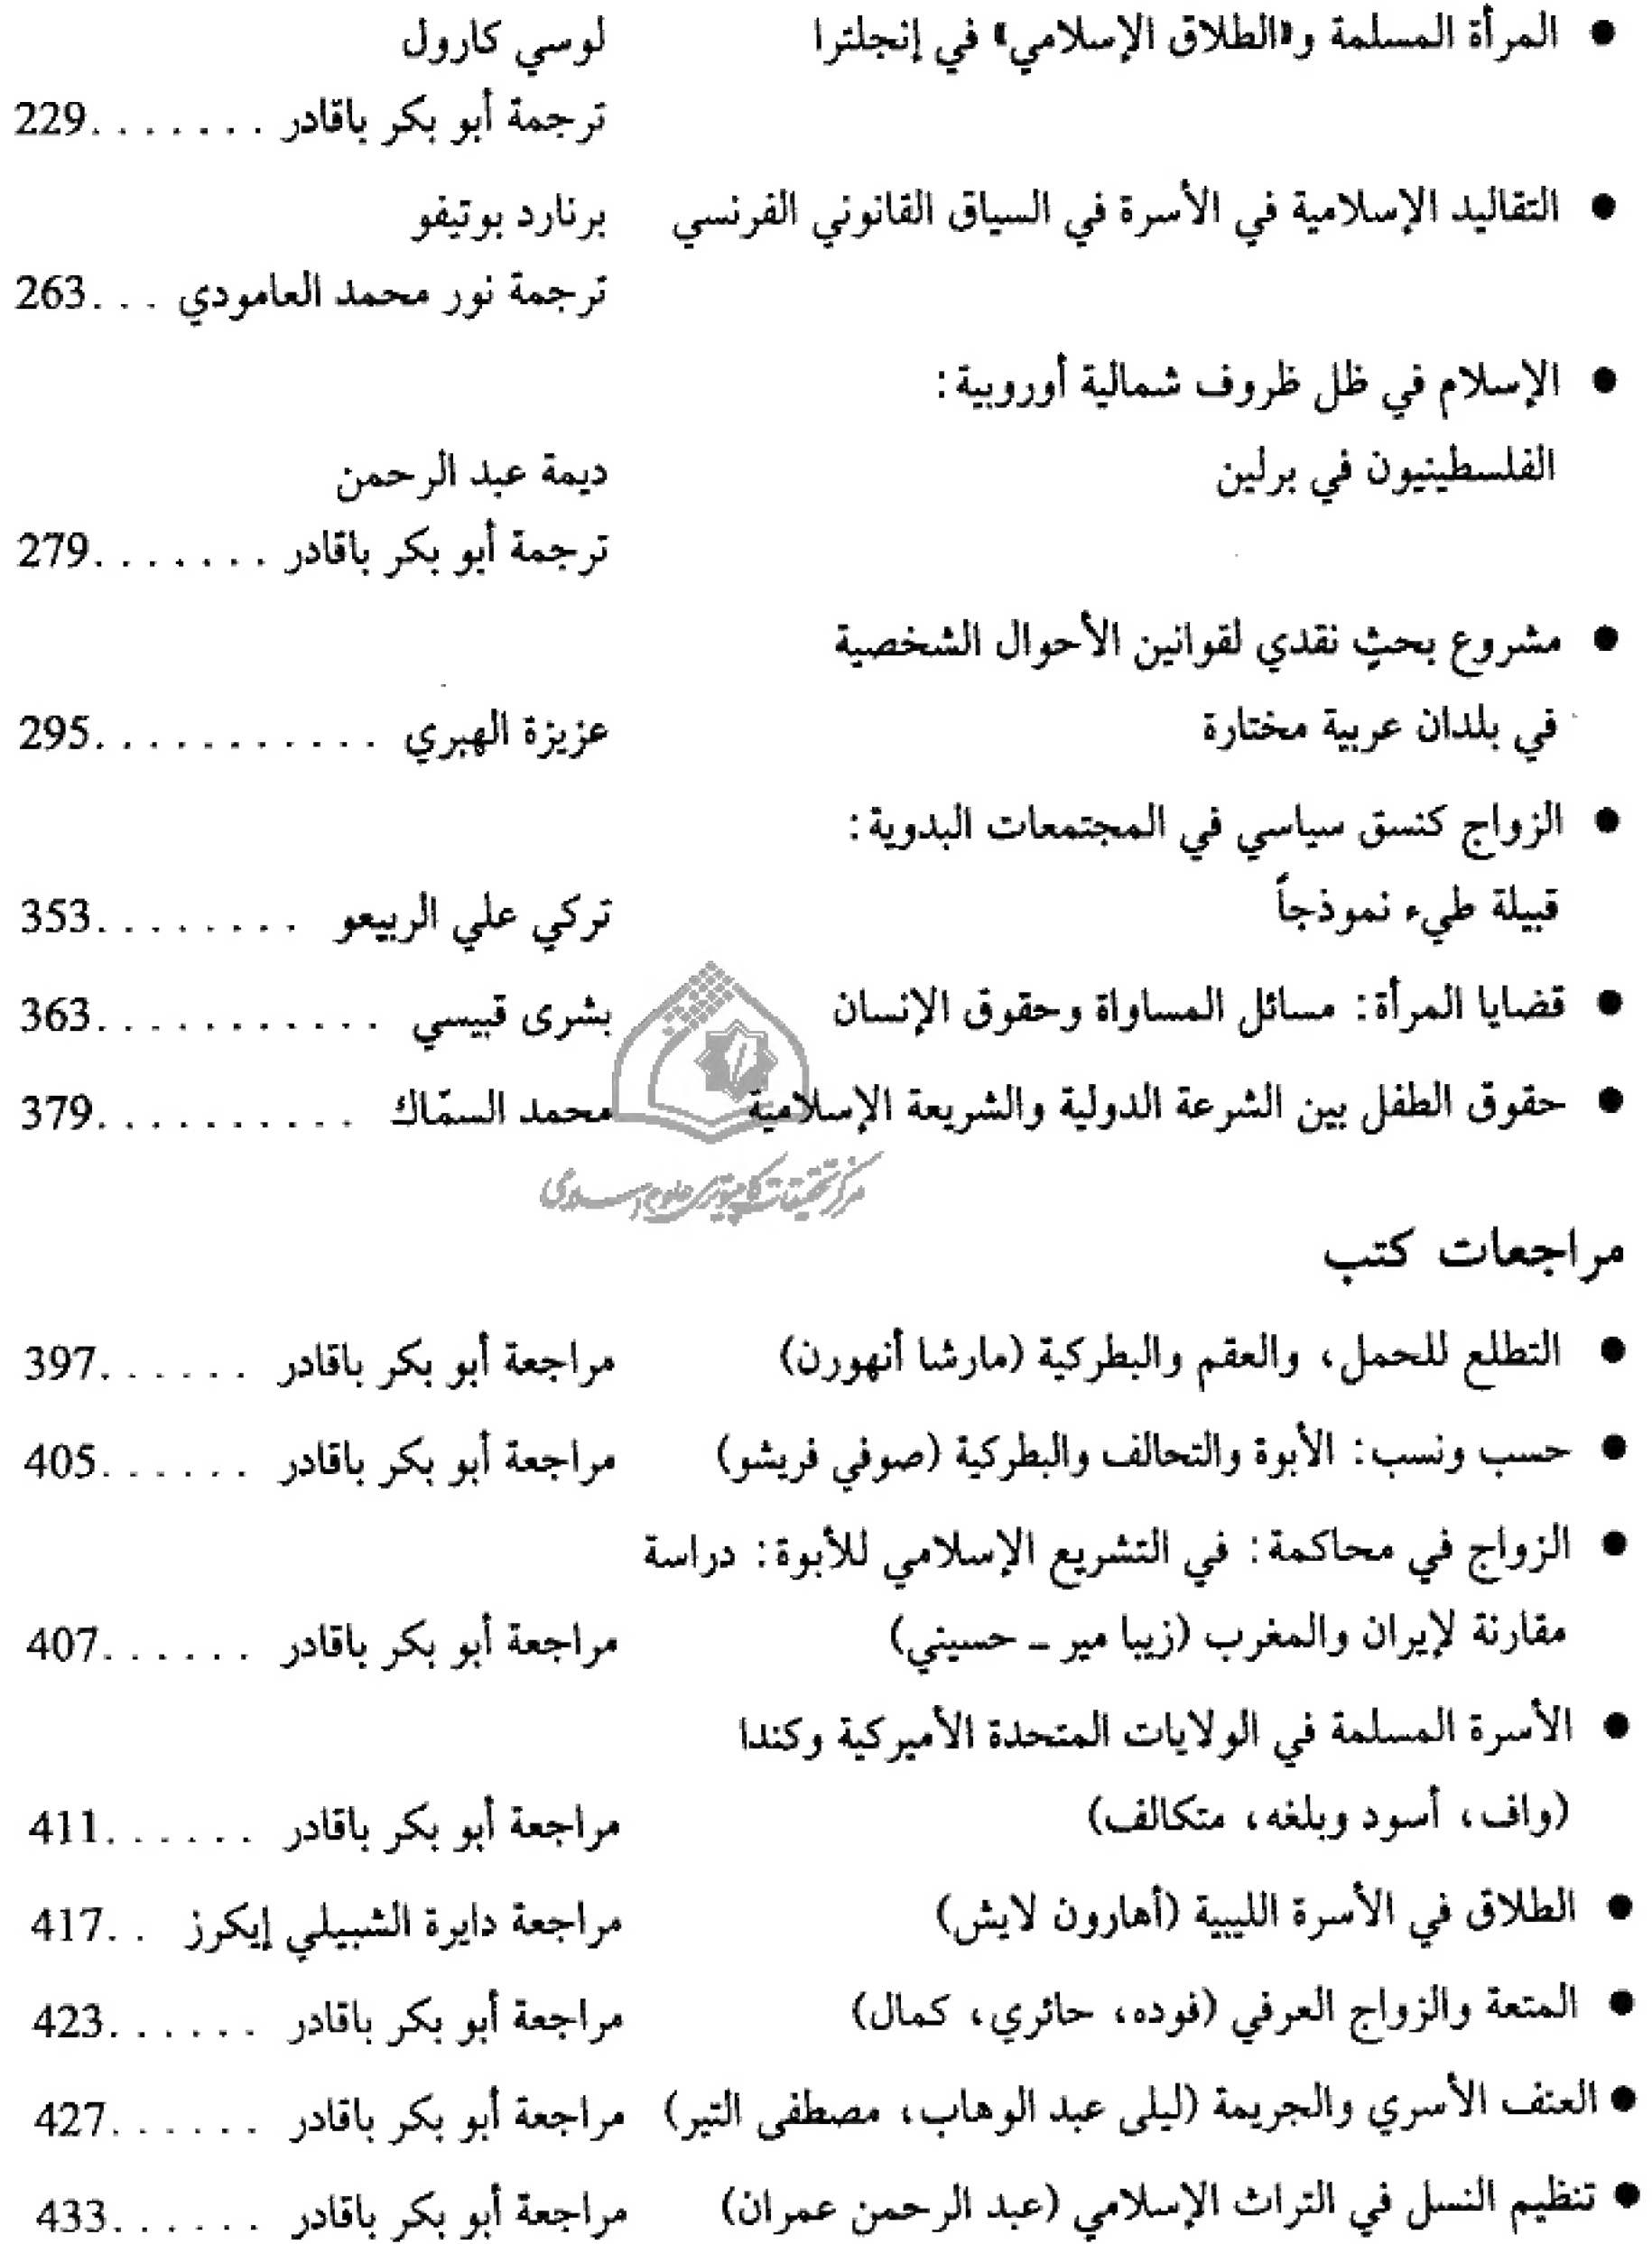 • المرأة المسلمة و«الطلاق الإسلامي» في إنجلترا لوسي كارول
ترجمة أبو بكر باقادر . . . . . . .229
• التقاليد الإسلامية في الأسرة في السياق القانوني الفرنسي برنارد بوتيفو
ترجمة نور محمد العامودي . . .263
• الإسلام في ظل ظروف شمالية أوروبية:
الفلسطينيون في برلين ديمة عبد الرحمن
ترجمة أبو بكر باقادر . . . . . . .279
• مشروع بحثٍ نقدي لقوانين الأحوال الشخصية
في بلدان عربية مختارة عزيزة الهبري . . . . . . . . . . .295
• الزواج كنسق سياسي في المجتمعات البدوية:
قبيلة طيء نموذجاً تركي علي الربيعو . . . . . . . .353
• قضايا المرأة: مسائل المساواة وحقوق الإنسان بشرى قبيسي . . . . . . . . . . .363
• حقوق الطفل بين الشرعة الدولية والشريعة الإسلامية محمد السمّاك . . . . . . . . . .379
مرکز تحقیقات کامپیوتری علوم اسلامی
مراجعات كتب
• التطلع للحمل، والعقم والبطركية (مارشا أنهورن) مراجعة أبو بكر باقادر . . . . . .397
• حسب ونسب: الأبوة والتحالف والبطركية (صوفي فريشو) مراجعة أبو بكر باقادر . . . . . .405
• الزواج في محاكمة: في التشريع الإسلامي للأبوة: دراسة
مقارنة لإيران والمغرب (زيبا مير ـ حسيني) مراجعة أبو بكر باقادر . . . . . .407
• الأسرة المسلمة في الولايات المتحدة الأميركية وكندا
(واف، أسود وبلغه، متكالف) مراجعة أبو بكر باقادر . . . . . .411
• الطلاق في الأسرة الليبية (أهارون لايش) مراجعة دايرة الشبيلي إيكرز . .417
• المتعة والزواج العرفي (فوده، حائري، كمال) مراجعة أبو بكر باقادر . . . . . .423
• العنف الأسري والجريمة (ليلى عبد الوهاب، مصطفى التير) مراجعة أبو بكر باقادر . . . . . .427
• تنظيم النسل في التراث الإسلامي (عبد الرحمن عمران) مراجعة أبو بكر باقادر . . . . . .433